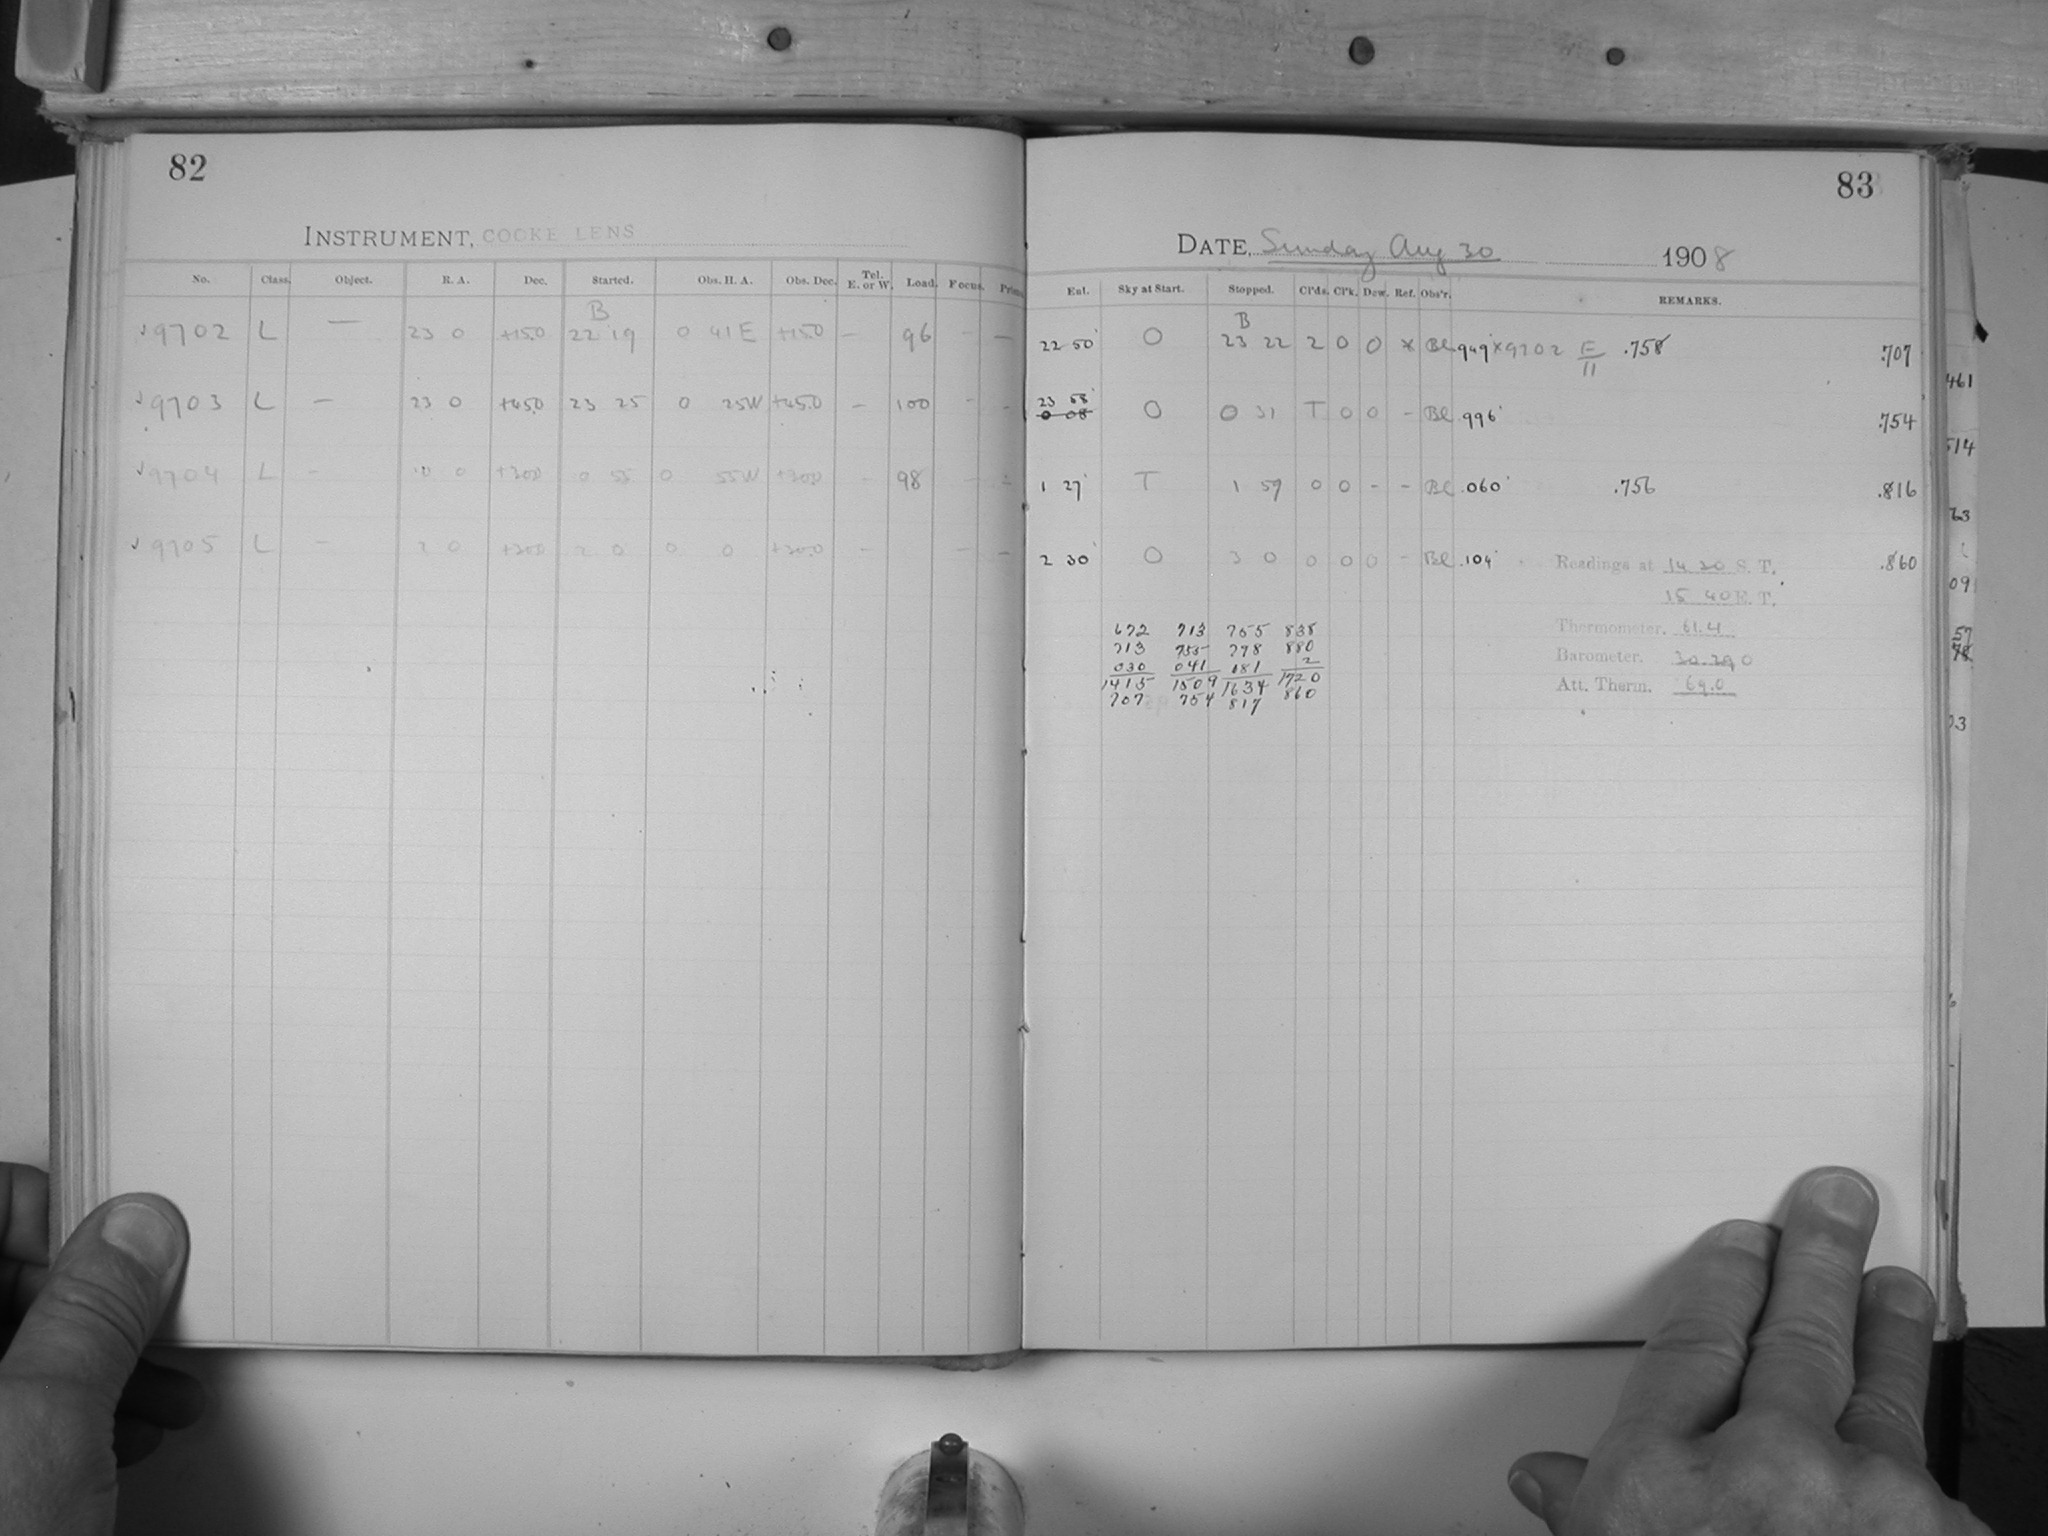 82
INSTRUMENT, COOKE LENS
No. Class. Object. R. A. Dec. Started. Obs. H. A. Obs. Dec. Tel. E. or W. Load. Focus.
B
✓ 9702 L — 23 0 +15.0 22 19 0 41 E +15.0 — 96 - —
✓ 9703 L — 23 0 +45.0 23 25 0 25W +45.0 — 100 - -
✓ 9704 L - 0 0 +30.0 0 55 0 55W +30.0 - 98 - -
✓ 9705 L - 2 0 +30.0 2 0 0 0 +30.0 - - -
83
DATE, Sunday Aug 30 1908
Ent. Sky at Start. Stopped. Cl'ds. Cl'k. Dew. Ref. Obs'r. REMARKS.
B
22 50 O 23 22 2 0 0 * Bl .949 *9702 E/11 .758 .707
23 58
0 08 O 0 31 T 0 0 - Bl .996 .754
1 27 T 1 59 0 0 - - Bl .060 .756 .816
2 30 O 3 0 0 0 0 - Bl .104 .860
Readings at 14 20 S. T.
15 40 E. T.
Thermometer. 61.4
Barometer. 30.290
Att. Therm. 69.0
672 713 755 838
713 755 778 880
030 041 181 2
1415 1509 1634 1720
707 754 817 860
461
514
63
09
57
78
03